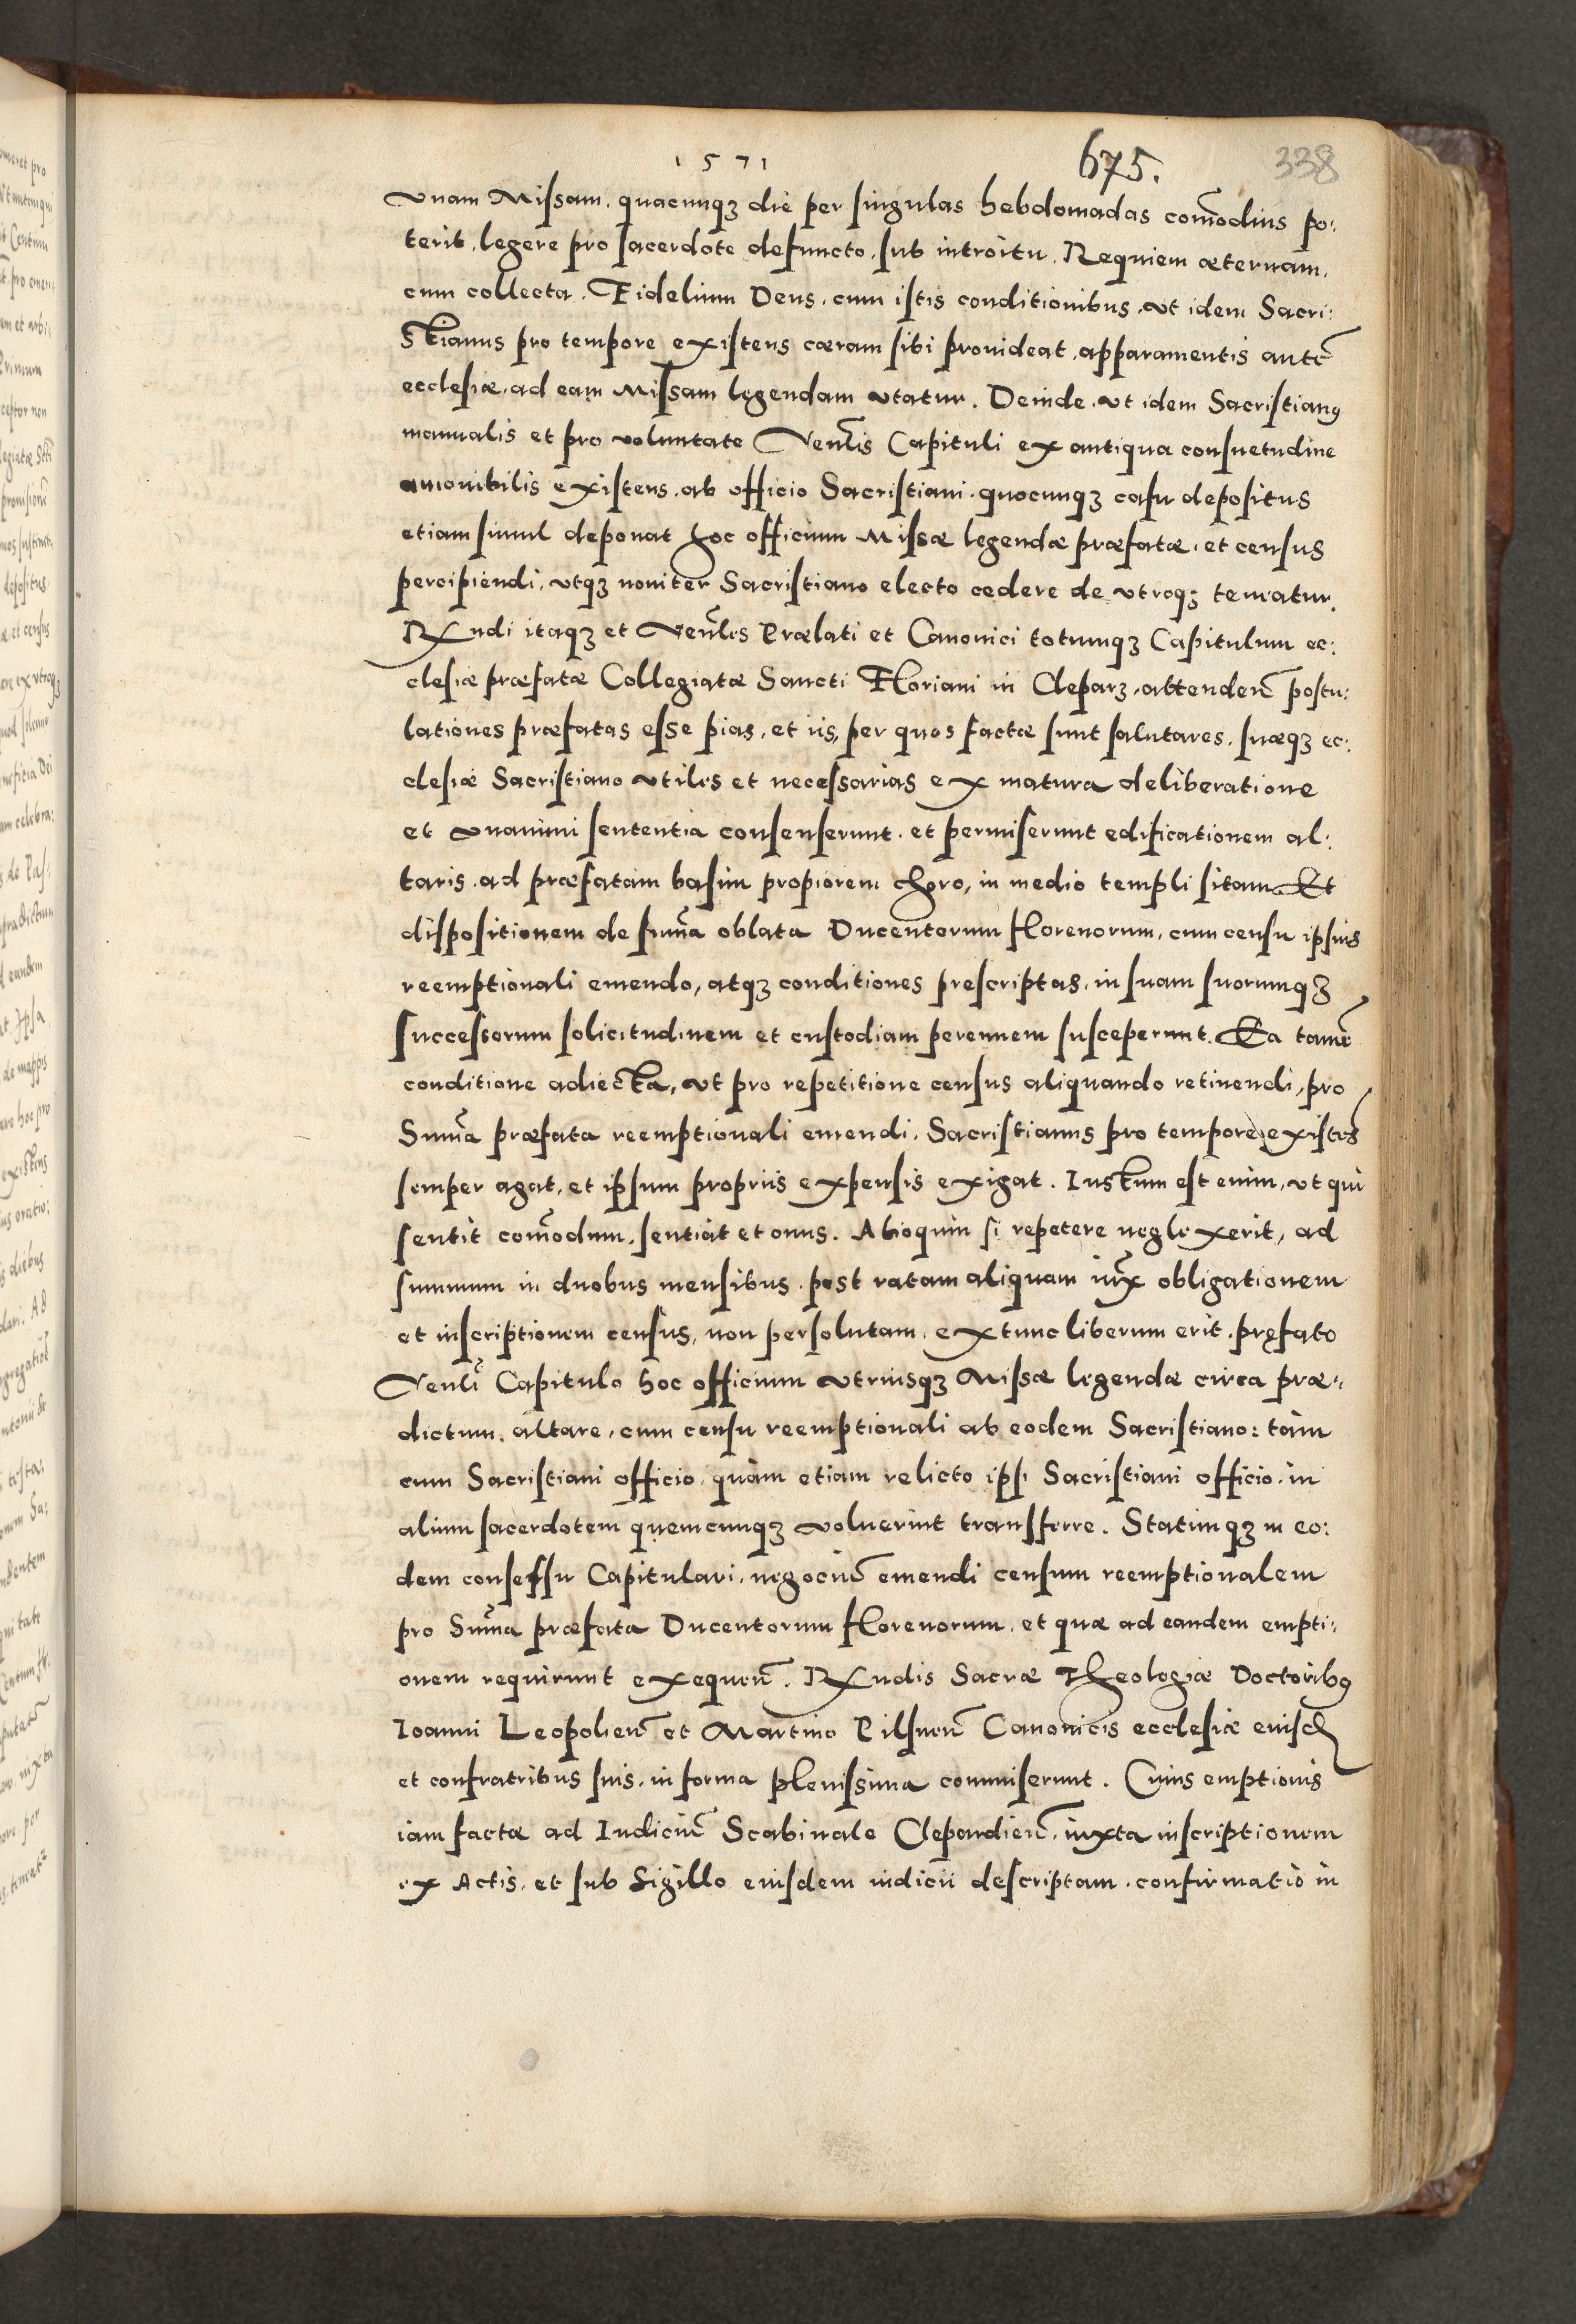 1571
675.
338
vnam Missam, quacunqꝫ die per singulas hebdomadas com̃odius po:
terit, legere pro sacerdote defuncto, sub introitu, Requiem æternam,
cum collecta, Fidelium Deus, cum istis conditionibus, vt idem Sacri:
stianus pro tempore existens cæram sibi prouideat, apparamentis autẽ
ecclesiæ, ad eam Missam legendam vtatur. Deinde, vt idem Sacristianꝰ
manualis et pro voluntate Venlis̃ Capituli ex antiqua consuetudine
amouibilis existens, ab officio Sacristiani, quocunqꝫ casu depositus
etiam simul deponat hoc officium Missæ legendæ præfatæ, et census
percipiendi, vtqꝫ nouiter Sacristiano electo cedere de vtroqꝫ teneatur.
Rx̃ndi itaqꝫ et Venl̃es Prælati et Canonici totumqꝫ Capitulum ec:
clesiæ præfatæ Collegiatæ Sancti Floriani in Cleparꝫ, attenden̄ postu:
lationes præfatas esse pias, et iis, per quos factæ sunt salutares, suæqꝫ ec:
clesiæ Sacristiano vtiles et necessarias ex matura deliberatione
et vnanimi sententia consenserunt, et permiserunt edificationem al:
taris, ad præfatam basim propiorem choro, in medio templi sitam. Et
dispositionem de sum̃a oblata Ducentorum florenorum, cum censu ipsius
reemptionali emendo, atqꝫ conditiones prescriptas, in suam suorumqꝫ
successorum solicitudinem et custodiam perennem susceperunt. Ea tamẽ
conditione adiecta, vt pro repetitione census aliquando retinendi, pro
Sum̃a præfata reemptionali emendi, Sacristianus pro tempore existẽs
semper agat, et ipsum propriis expensis exigat. Iustum est enim, vt qui
sentit com̃odum, sentiat et onus. Alioquin si repetere neglexerit, ad
summum in duobus mensibus, post ratam aliquam iux̃ obligationem
et inscriptionem census, non persolutam, extunc liberum erit, pręfato
Venlĩ Capitulo hoc officium vtriusqꝫ Missæ legendæ circa præ:
dictum, altare, cum censu reemptionali ab eodem Sacristiano: tàm
cum Sacristiani officio, quàm etiam relicto ipsi Sacristiani officio, in
alium sacerdotem quemcunqꝫ voluerint transferre. Statimqꝫ in eo:
dem consessu Capitulari, negociũ emendi censum reemptionalem
pro Sum̃a præfata Ducentorum florenorum, et quæ ad eandem empti:
onem requirunt exequen̄. Rx̃ndis Sacræ Theologiæ Doctoribꝰ
Ioanni Leopolien̄ et Martino Pilsnen̄ Canonicis ecclesiæ eiusd̃
et confratribus suis, in forma plenissima commiserunt. Cuius emptionis
iam factæ ad Iudiciũ Scabinale Clepardien̄, iuxta inscriptionem
ex Actis, et sub Sigillo eiusdem iudicii descriptam, confirmatio in